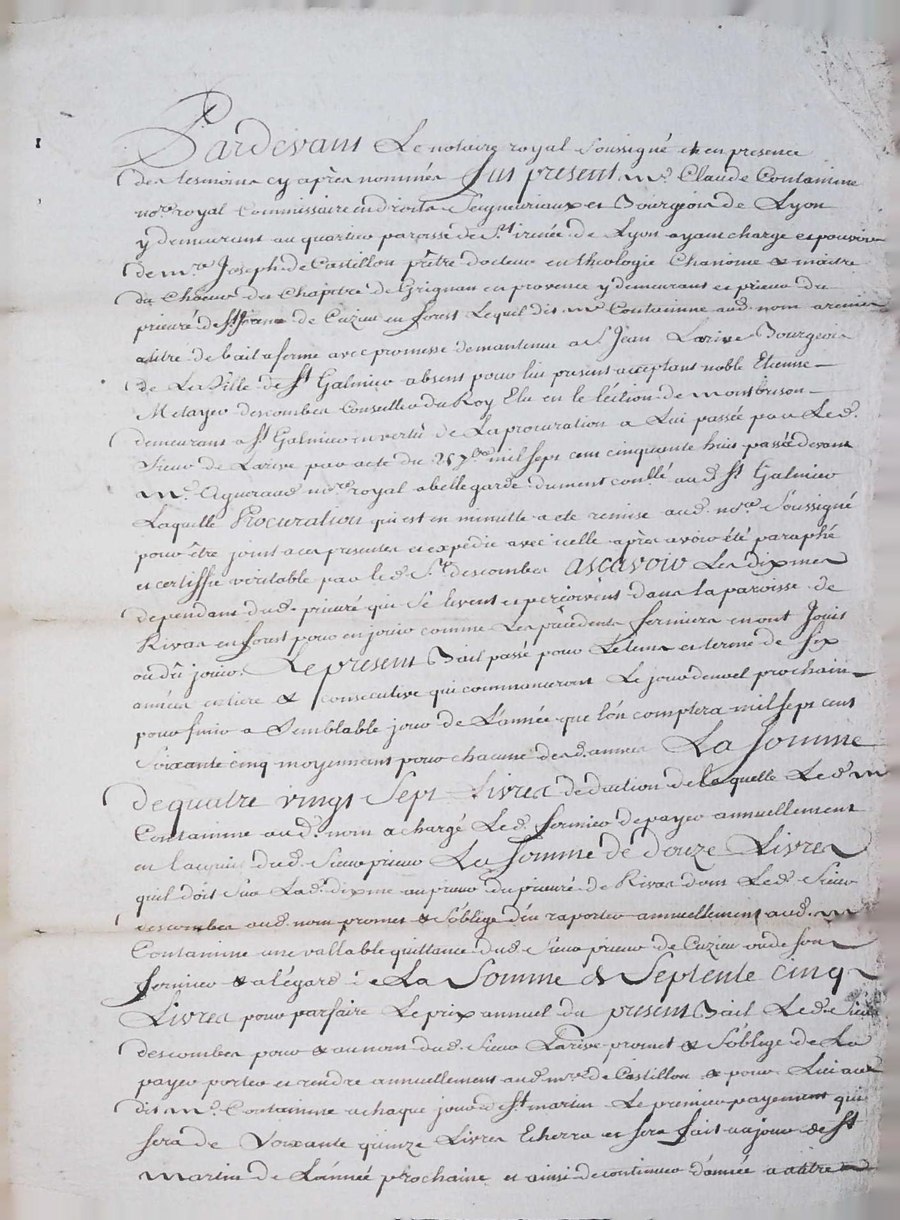 Pardevant Le notaire royal soussigné et en presence
des tesmoins cy après nommés fut present me. Claude Contamine
nore royal Commissaire en droits Seigneuriaux et Bourgeois de Lyon
y demeurant au quartier paroisse de St. irenée de Lyon ayant charge et pouvoir
de mre Joseph de Castillon prêtre docteur en theologie Chanoine & maitre
du Choeur du Chapitre de Grignan en provence y demeurant et prieur du
prieuré de St de Cuzieu en forest Lequel dit me Contamine aud. nom
atitre de bail a ferme avec promesse de mantenir a Sr. Jean Larive Bourgeois
de La Ville de St Galmier absent pour lui present acceptant noble Etienne
Metayer descombes Conseiller du Roy Elu en le léction de montbrison
demeurant a St Galmier en vertu de La procuration a Lui passée par Led.
Sieur de Larive par acte du mil sept cent cinquante huit passée devant
me. nore royal a bellegarde dument conllé aud. St Galmier
Laquelle Procuration qui est en minutte a eté remise aud. nore Soussigné
pour être joint a ces presentes et expedié avec icelle après avoir été paraphé
et certiffié veritable par led. Sr. descombes ascavoir Les dixmes
dependant dud. prieuré qui se levent et perçoivent dans la paroisse de
Rivas en forest pour en jouir comme Les précédents fermiers en ont Jouis
ou dû jouir. Le present Bail passé pour Letems et terme de six
années entiere & consecutive qui commanceront Le jour de noel prochain
pour finir a Semblable jour de L'année que l'on comptera mil sept cens
Soixante cinq moyennant pour chacune desd. années La somme
de quatre vingt Sept Livres deduction de laquelle Led. me
Contamine aud. nom a chargé Led. fermier de payer annuellement
en l'acquis dud. Sieur prieur La somme de douze Livres
quil doit sur Lad. dixme au prieur du prieuré de Rivas dont Led. Sieur
descombes aud. nom promet & s'oblige d'en raporter annuellement aud. me
Contamine une vallable quittance dud. Sieur prieur de Cuzieu ou de son
fermier & a legard de La Somme de Septente cinq
Livres pour parfaire Le prix annuel du present Bail Led. Sieur
descombes pour & au nom dud. Sieur Larive promet & s'oblige de La
payer porter et rendre annuellement aud. mre de Castillon & pour Lui aud
dit me. Contamine a chaque jour de St martin Le premier payement qui
sera de Soixante quinze Livres Echerra et sera fait au jour de St
martin de L'année prochaine et ainsi de continuer d'année a autre